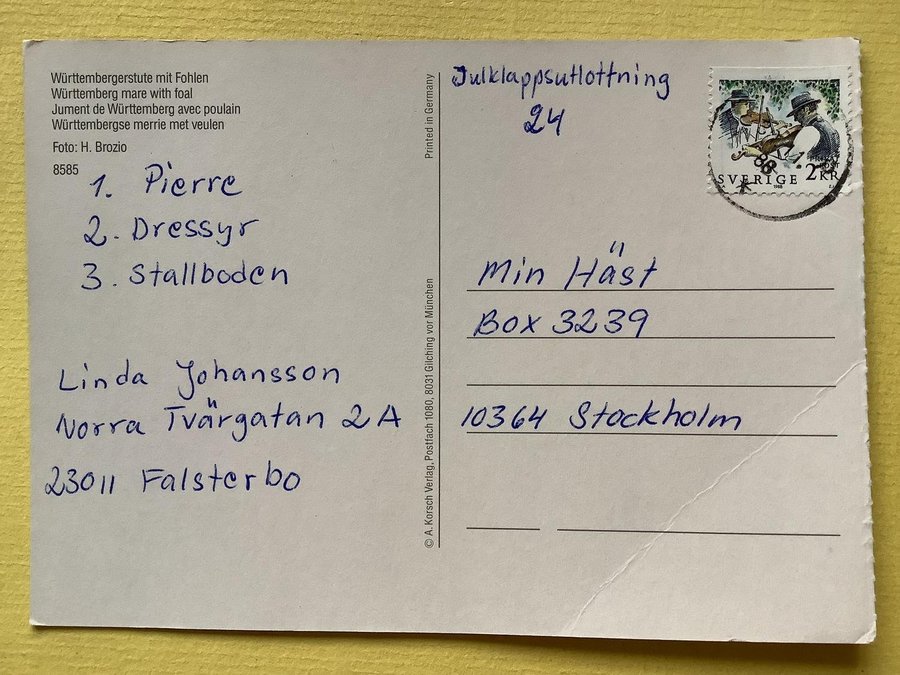 Württembergerstute mit Fohlen
Württemberg mare with foal
Jument de Württemberg avec poulain
Württembergse merrie met veulen
Foto: H. Brozio
8585
1. Pierre
2. Dressyr
3. Stallboden
Linda Johansson
Norra Tvärgatan 2 A
23011 Falsterbo
Printed in Germany
© A. Korsch Verlag, Postfach 1080, 8031 Gilching vor München
Julklappsutlottning
24
SVERIGE 2 KR
88
Min Häst
Box 3239
10364 Stockholm